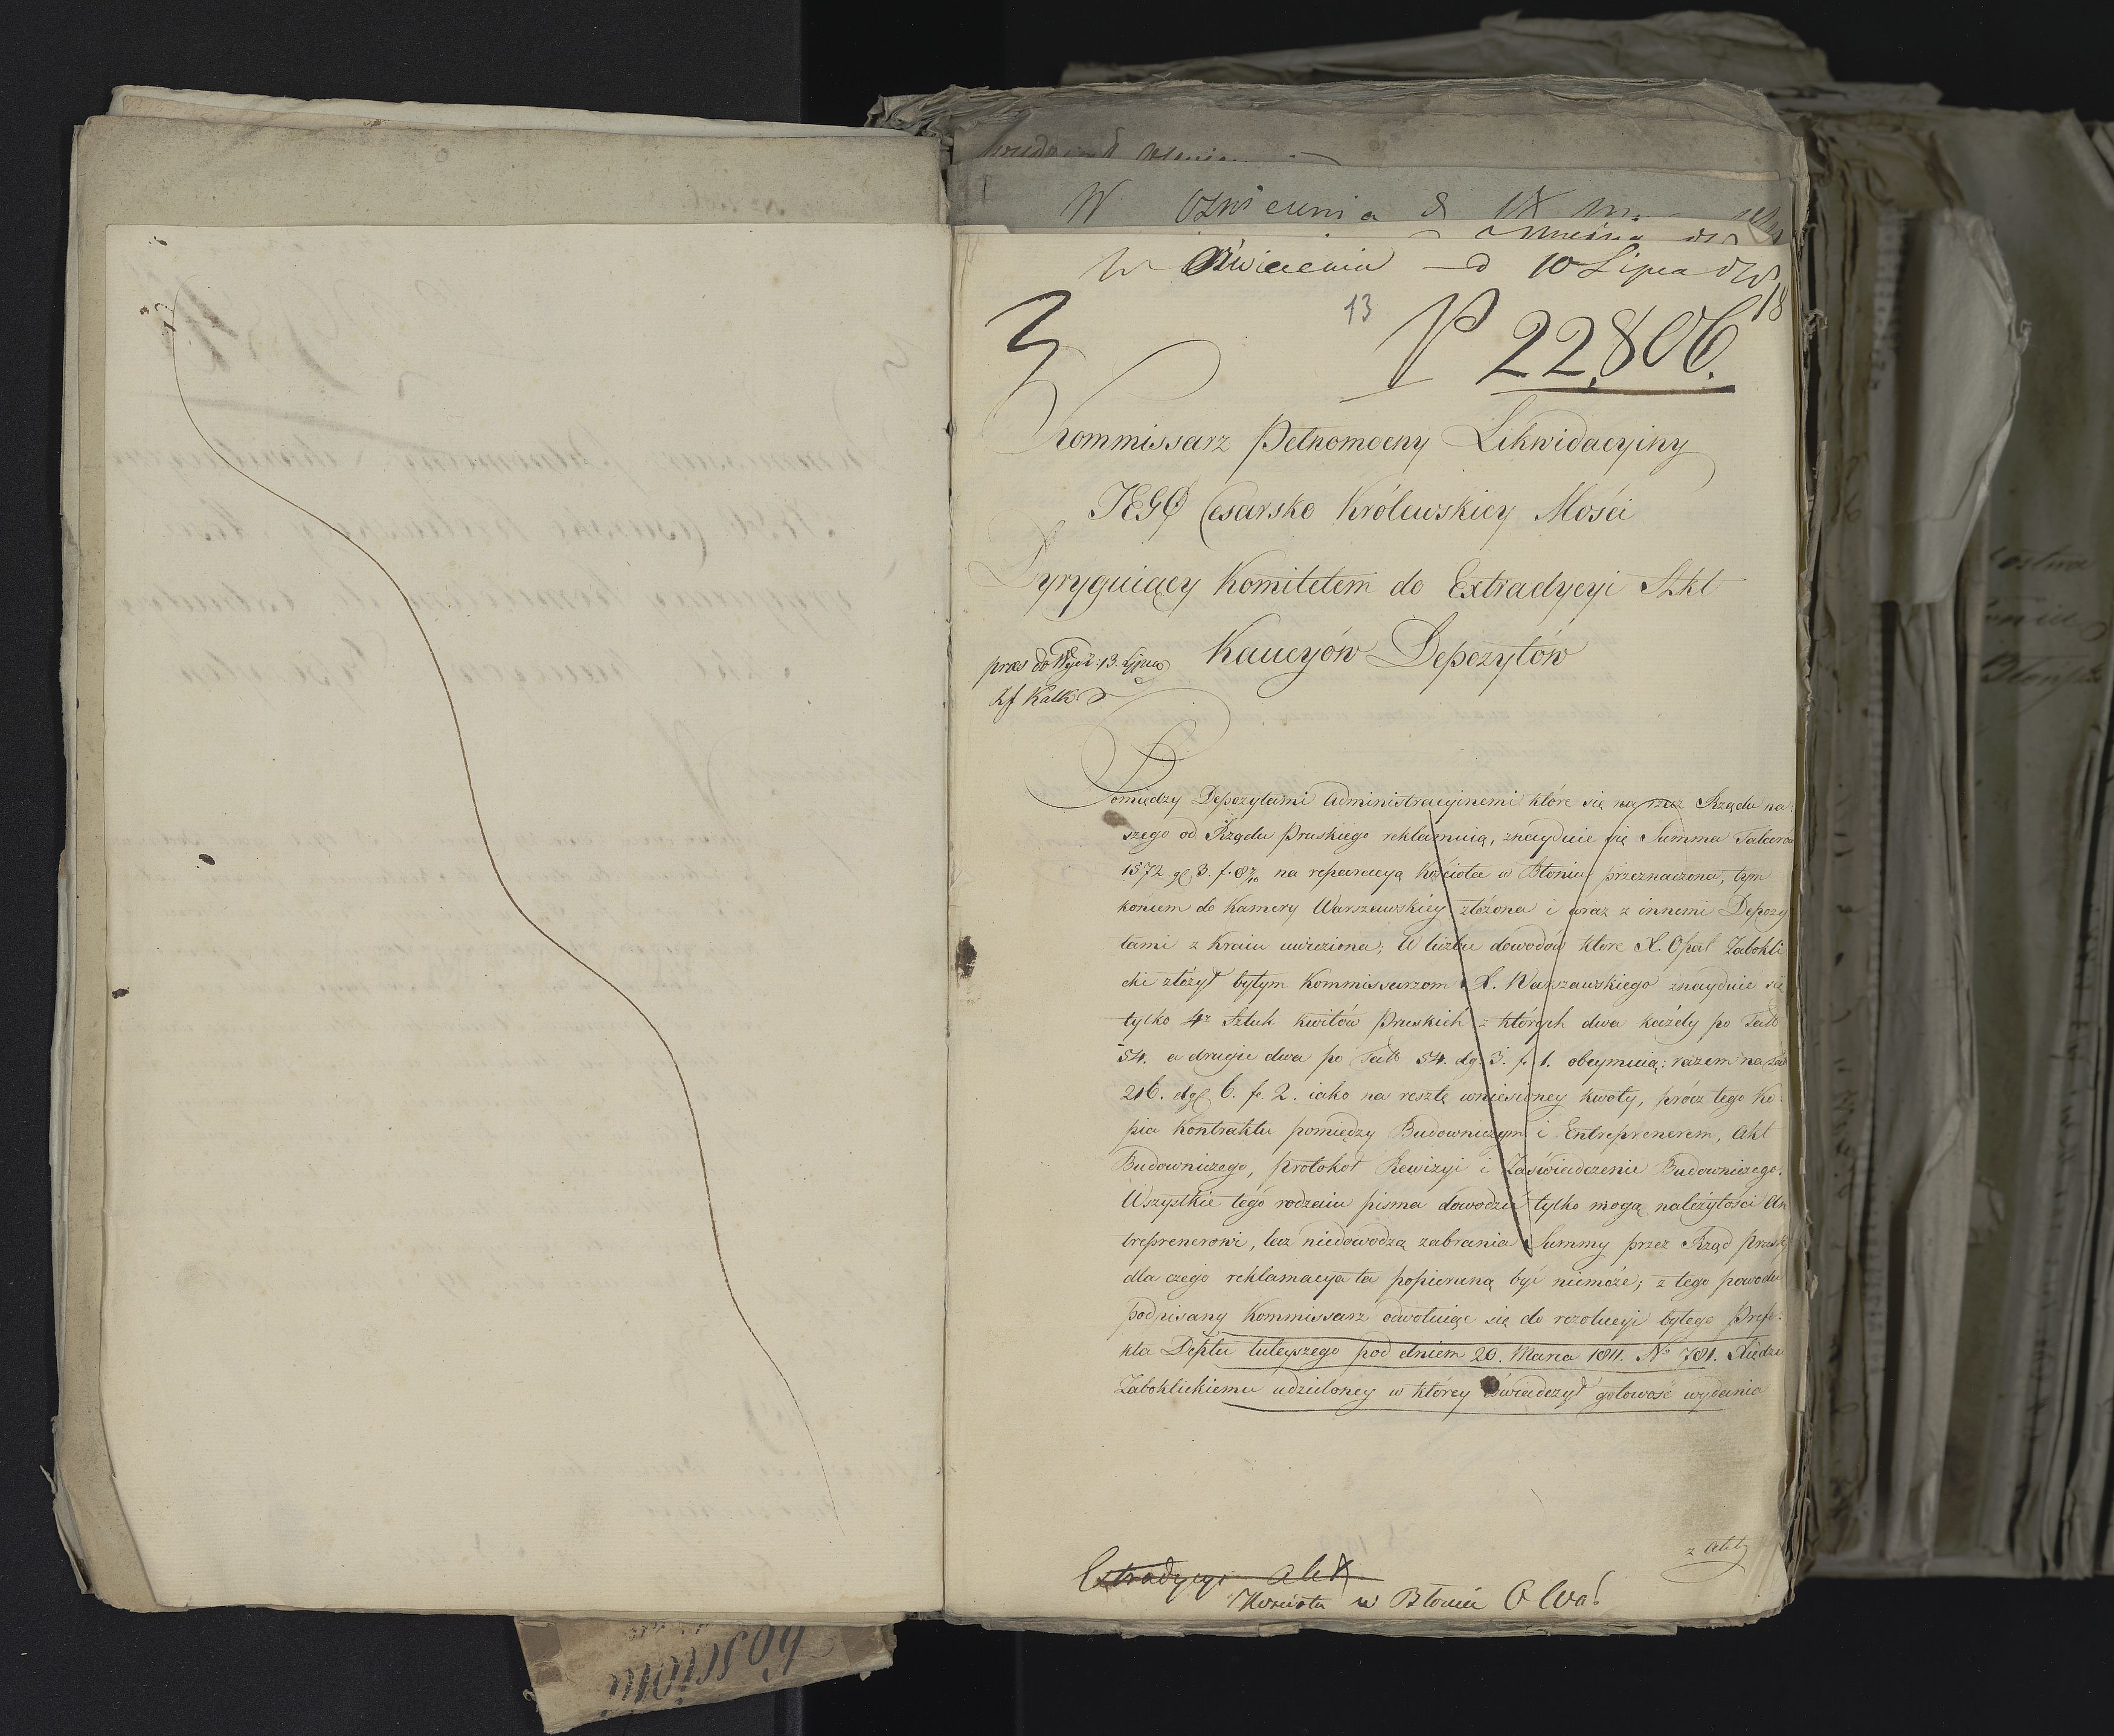 W Oźwiecenia d
w Oświecenia — d 10 Lipca 818
13
P 22,806.
Kommissarz Pełnomocny Likwidacyiny
JEGO Cesarsko Królewskiey Mości
Dyryguiący Komitetem do Extradycyi Akt
Kaucyów Depozytów
præs do Wydz: 13. Lipca
Pomiędzy Depozytami Administracyinemi które się na rzecz Rządu na-
szego od Rządu Pruskiego reklamuią, znayduie się Summa Talarów
1572. gl 3. f. 8 7/10 na reparacyą Kościoła w Błoniu przeznaczona, tym
koncem do Kamery Warszawskiey złożona i wraz z innemi Depozy-
tami z Kraiu uwieziona; W liczbie dowodów które X. Opat Zabokli
cki złożył byłym Kommissarzom X. Warszawskiego znayduie się
tylko 4y Sztuk kwitów Pruskich z których dwa każdy po Tall
54. a drugie dwa po Tall 54. dg. 3. f. 1. obeymuią: razem na tal
216. dgl 6. f. 2. iako na resztę wniesioney kwoty, prócz tego Ko-
pia Kontraktu pomiędzy Budowniczym i Entreprenerem, Akt
Budowniczego, protokoł Rewizyi i Zaświadczenie Budowniczego.
Wszystkie tego rodzaiu pisma dowodzić tylko mogą należytości An
treprenerowi, lecz niedowodzą zabrania Summy przez Rząd Pruski
dla czego reklamacya ta popieraną być niemoże; z tego powodu
podpisany Kommissarz odwołuiąc się do rezolucyi byłego Prefe-
kta Deptu tuteyszego pod dniem 20. Marca 1811. No 781. Xiędzu
Zaboklickiemu udzieloney w którey oświadczył gotowość wydania
z Akt
Extradycyi Akt
Kościoła w Błoniu
Kościoła